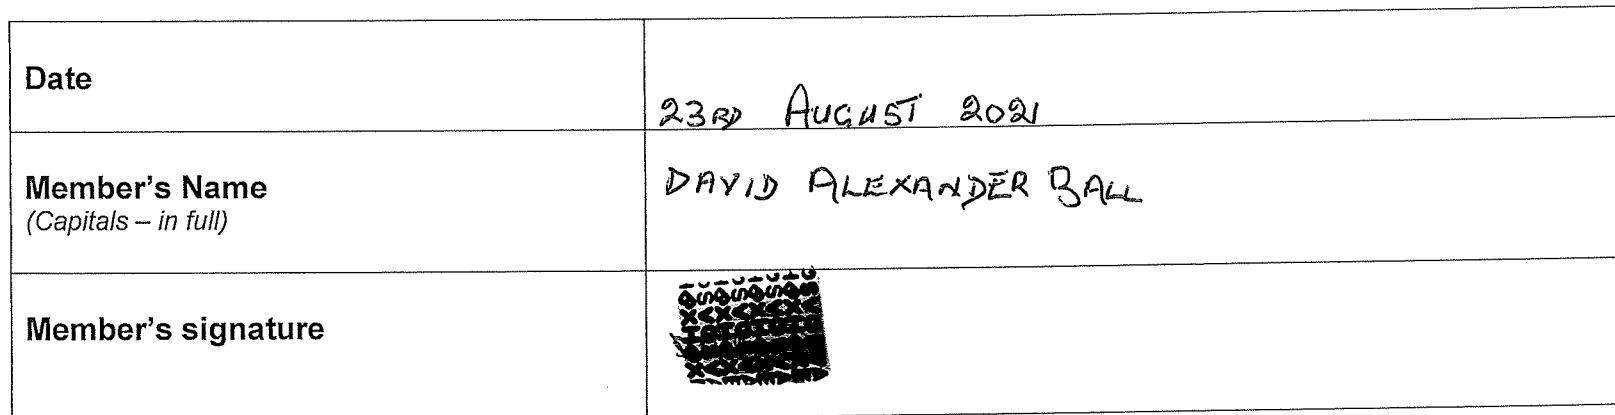 Date
23RD AUGUST 2021
Member's Name
(Capitals – in full)
DAVID ALEXANDER BALL
Member's signature